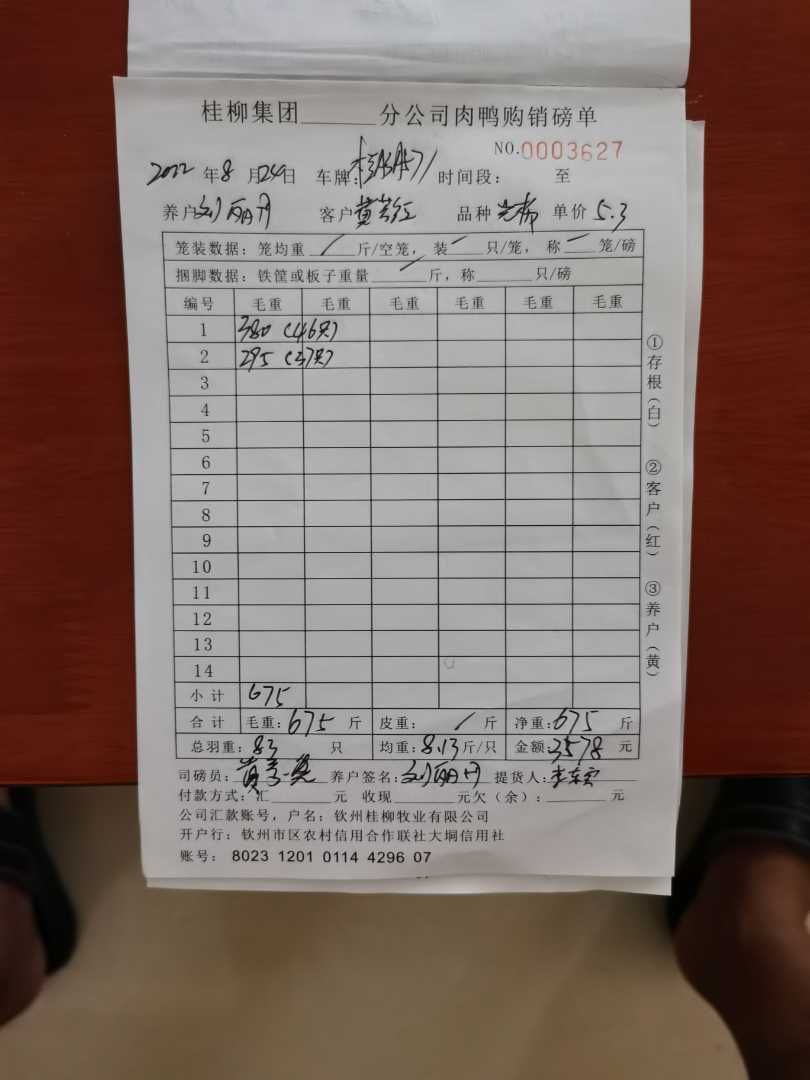 桂柳集团______分公司肉鸭购销磅单
NO.0003627
2022年8月24日 车牌: 时间段: 至
养户刘丽丹 客户黄 品种 单价5.3
笼装数据:笼均重 / 斤/空笼,装 — 只/笼,称 — 笼/磅
捆脚数据:铁筐或板子重量 — 斤,称______只/磅
编号 毛重 毛重 毛重 毛重 毛重 毛重
1 380(46只)
2 295(37只)
3
4
5
6
7
8
9
10
11
12
13
14
小计 675
合计 毛重:675斤 皮重: / 斤 净重:675斤
总羽重:83只 均重:8.13斤/只 金额:3578元
司磅员:黄 养户签名:刘丽丹 提货人:李
付款方式:汇______元 收现______元欠(余):______元
公司汇款账号,户名:钦州桂柳牧业有限公司
开户行:钦州市区农村信用合作联社大垌信用社
账号:8023 1201 0114 4296 07
①存根(白)
②客户(红)
③养户(黄)